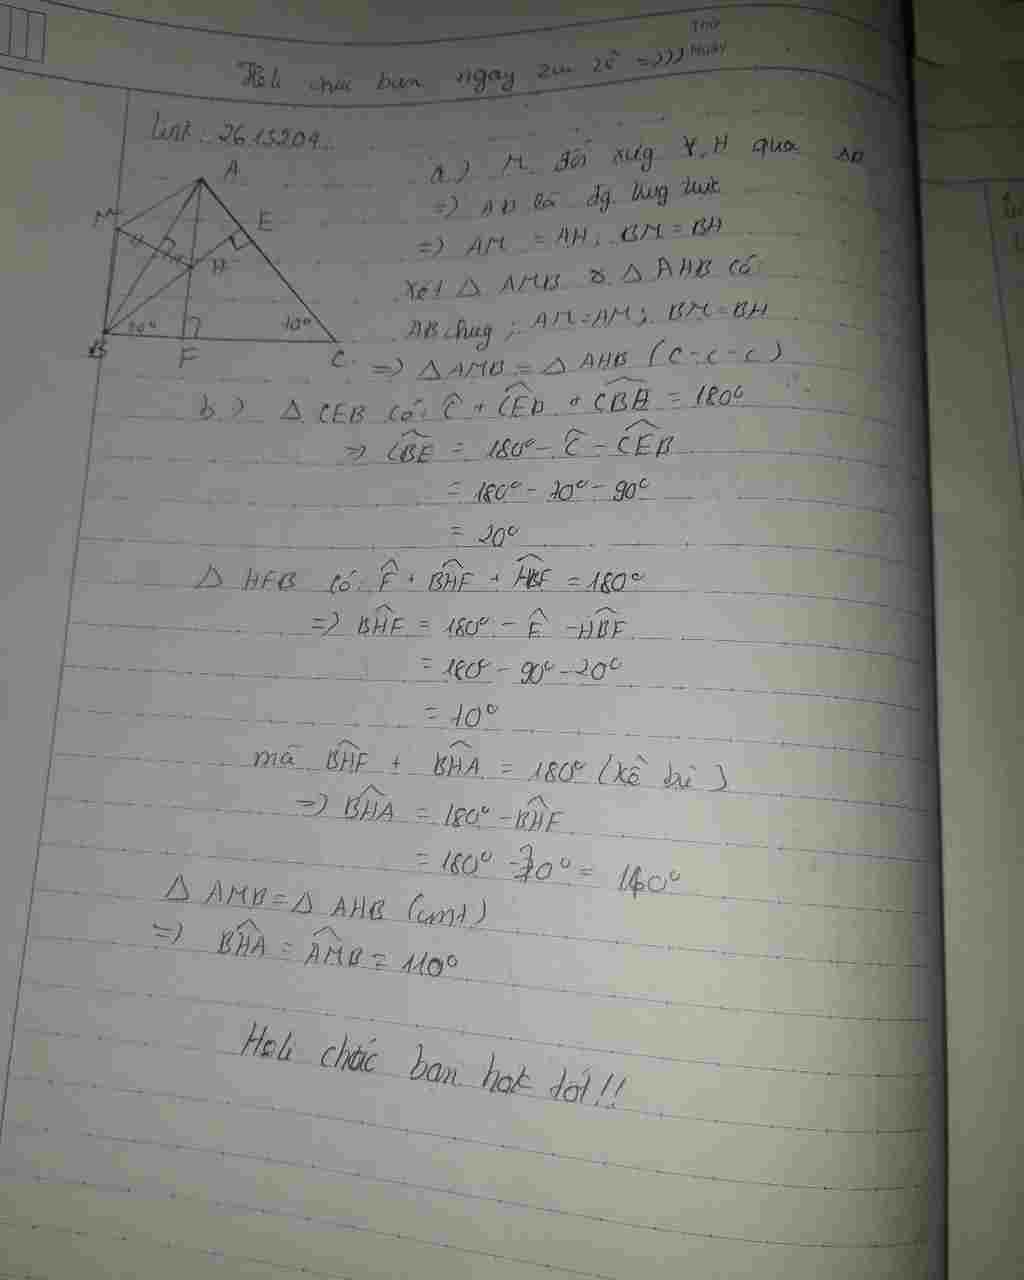 Thứ
Ngày
Holi chúc bạn ngày zui zẻ =)))
link: 26.13204..
A
M
E
H
B
20°
F
70°
C
a) M đối xứg v. H qua AB
=) AB là đg. trug trực
=) AM = AH; BM = BH
Xét △ AMB & △ AHB có
AB chug; AM = AM; BM = BH
=) △ AMB = △ AHB (c-c-c)
b.) △ CEB có: Ĉ + CEB + CBH = 180°
=) CBE = 180° - Ĉ - CEB
= 180° - 70° - 90°
= 20°
△ HFB có: F̂ + BHF + HBF = 180°
=) BHF = 180° - F̂ - HBF
= 180° - 90° - 20°
= 70°
mà BHF + BHA = 180° (kề bù)
=) BHA = 180° - BHF
= 180° - 70° = 110°
△ AMB = △ AHB (cmt)
=) BHA = AMB = 110°
Holi chúc bạn hok tốt!!